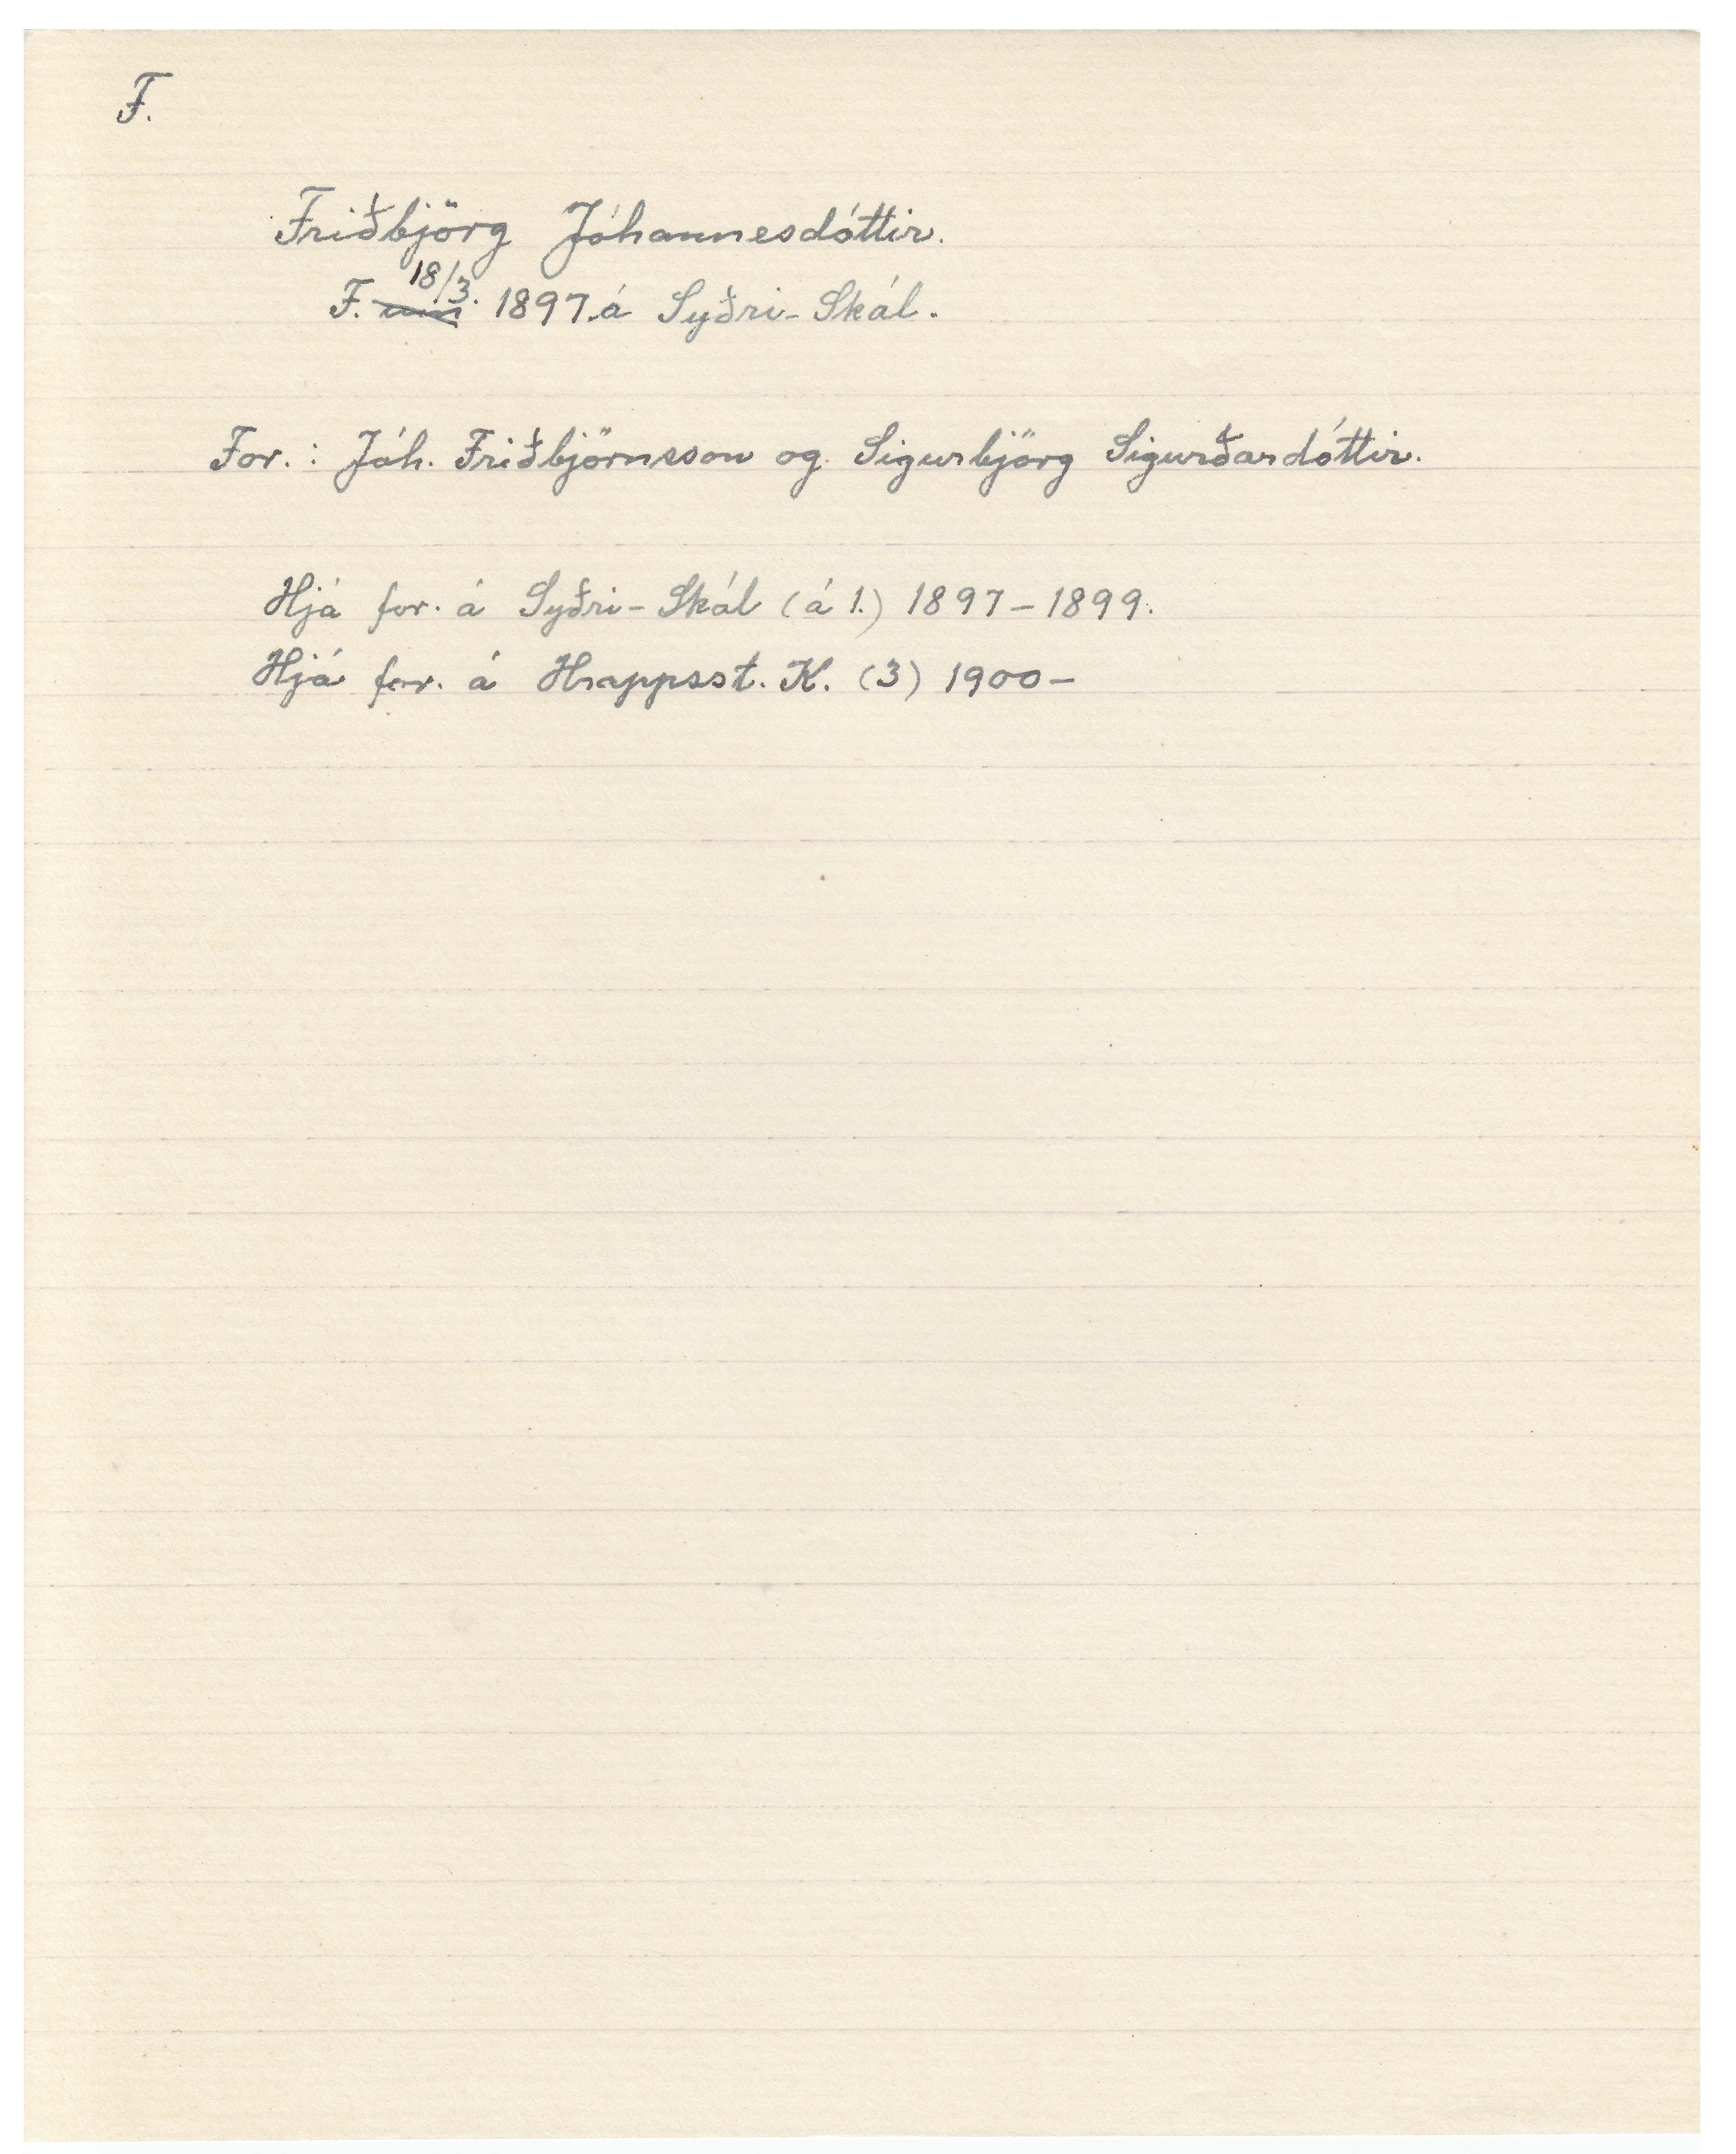 F.
Friðbjörg Jóhannesdóttir.
F. 18/3. 1897. á Syðri-Skál.
For.: Jóh. Friðbjörnsson og Sigurbjörg Sigurðardóttir.
Hjá for. á Syðri-Skál (á 1.) 1897-1899.
Hjá for. á Hrappsst. K. (3) 1900-